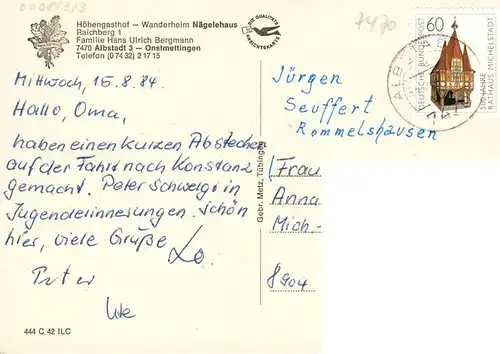 Höhengasthof – Wanderheim Nägelehaus
Raichberg 1
Familie Hans Ulrich Bergmann
7470 Albstadt 3 – Onstmettingen
Telefon (0 74 32) 2 17 15
DIE QUALITÄTS
ANSICHTSKARTE
7470
60
DEUTSCHE BUNDESPOST
500 JAHRE
RATHAUS MICHELSTADT
ALB
Mittwoch, 15.8.84.
Hallo, Oma,
haben einen kurzen Abstecher
auf der Fahrt nach Konstanz
gemacht. Peter schwelgt in
Jugenderinnerungen. Schön
hier, viele Grüße
Peter
Ute
Jürgen
Seuffert
Rommelshausen
Frau
Anna
Mich.-
8904
Gebr. Metz, Tübingen
444 C 42 ILC